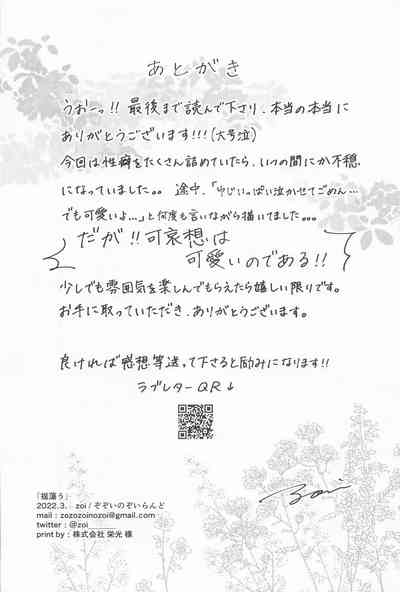 あとがき
うおーっ!! 最後まで読んで下さり、本当の本当に
ありがとうございます!!!(大号泣)
今回は性癖をたくさん詰めていたら、いつの間にか不穏
になっていました。。 途中、「ゆじいっぱい泣かせてごめん…
でも可愛いよ…」と何度も言いながら描いてました。。。
だが!!可哀想は
可愛いのである!!
少しでも雰囲気を楽しんでもらえたら嬉しい限りです。
お手に取っていただき、ありがとうございます。
良ければ感想等送って下さると励みになります!!
ラブレターQR↓
zoi
2022.3. zoi/ぞぞいのぞいらんど
mail:zozozoinozoi@gmail.com
twitter:@zoi_______
print by:株式会社 栄光 様